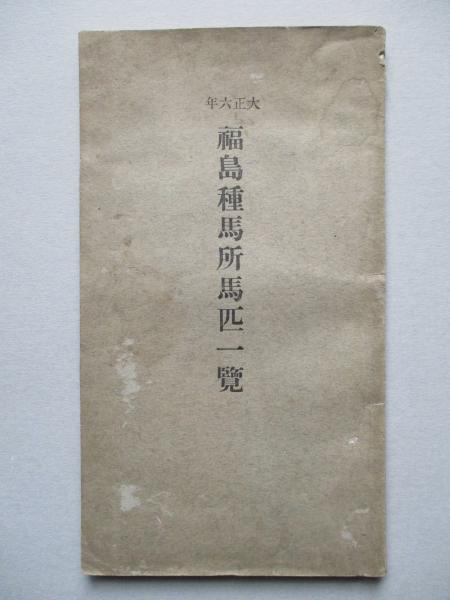 大正六年
福島種馬所馬匹一覽